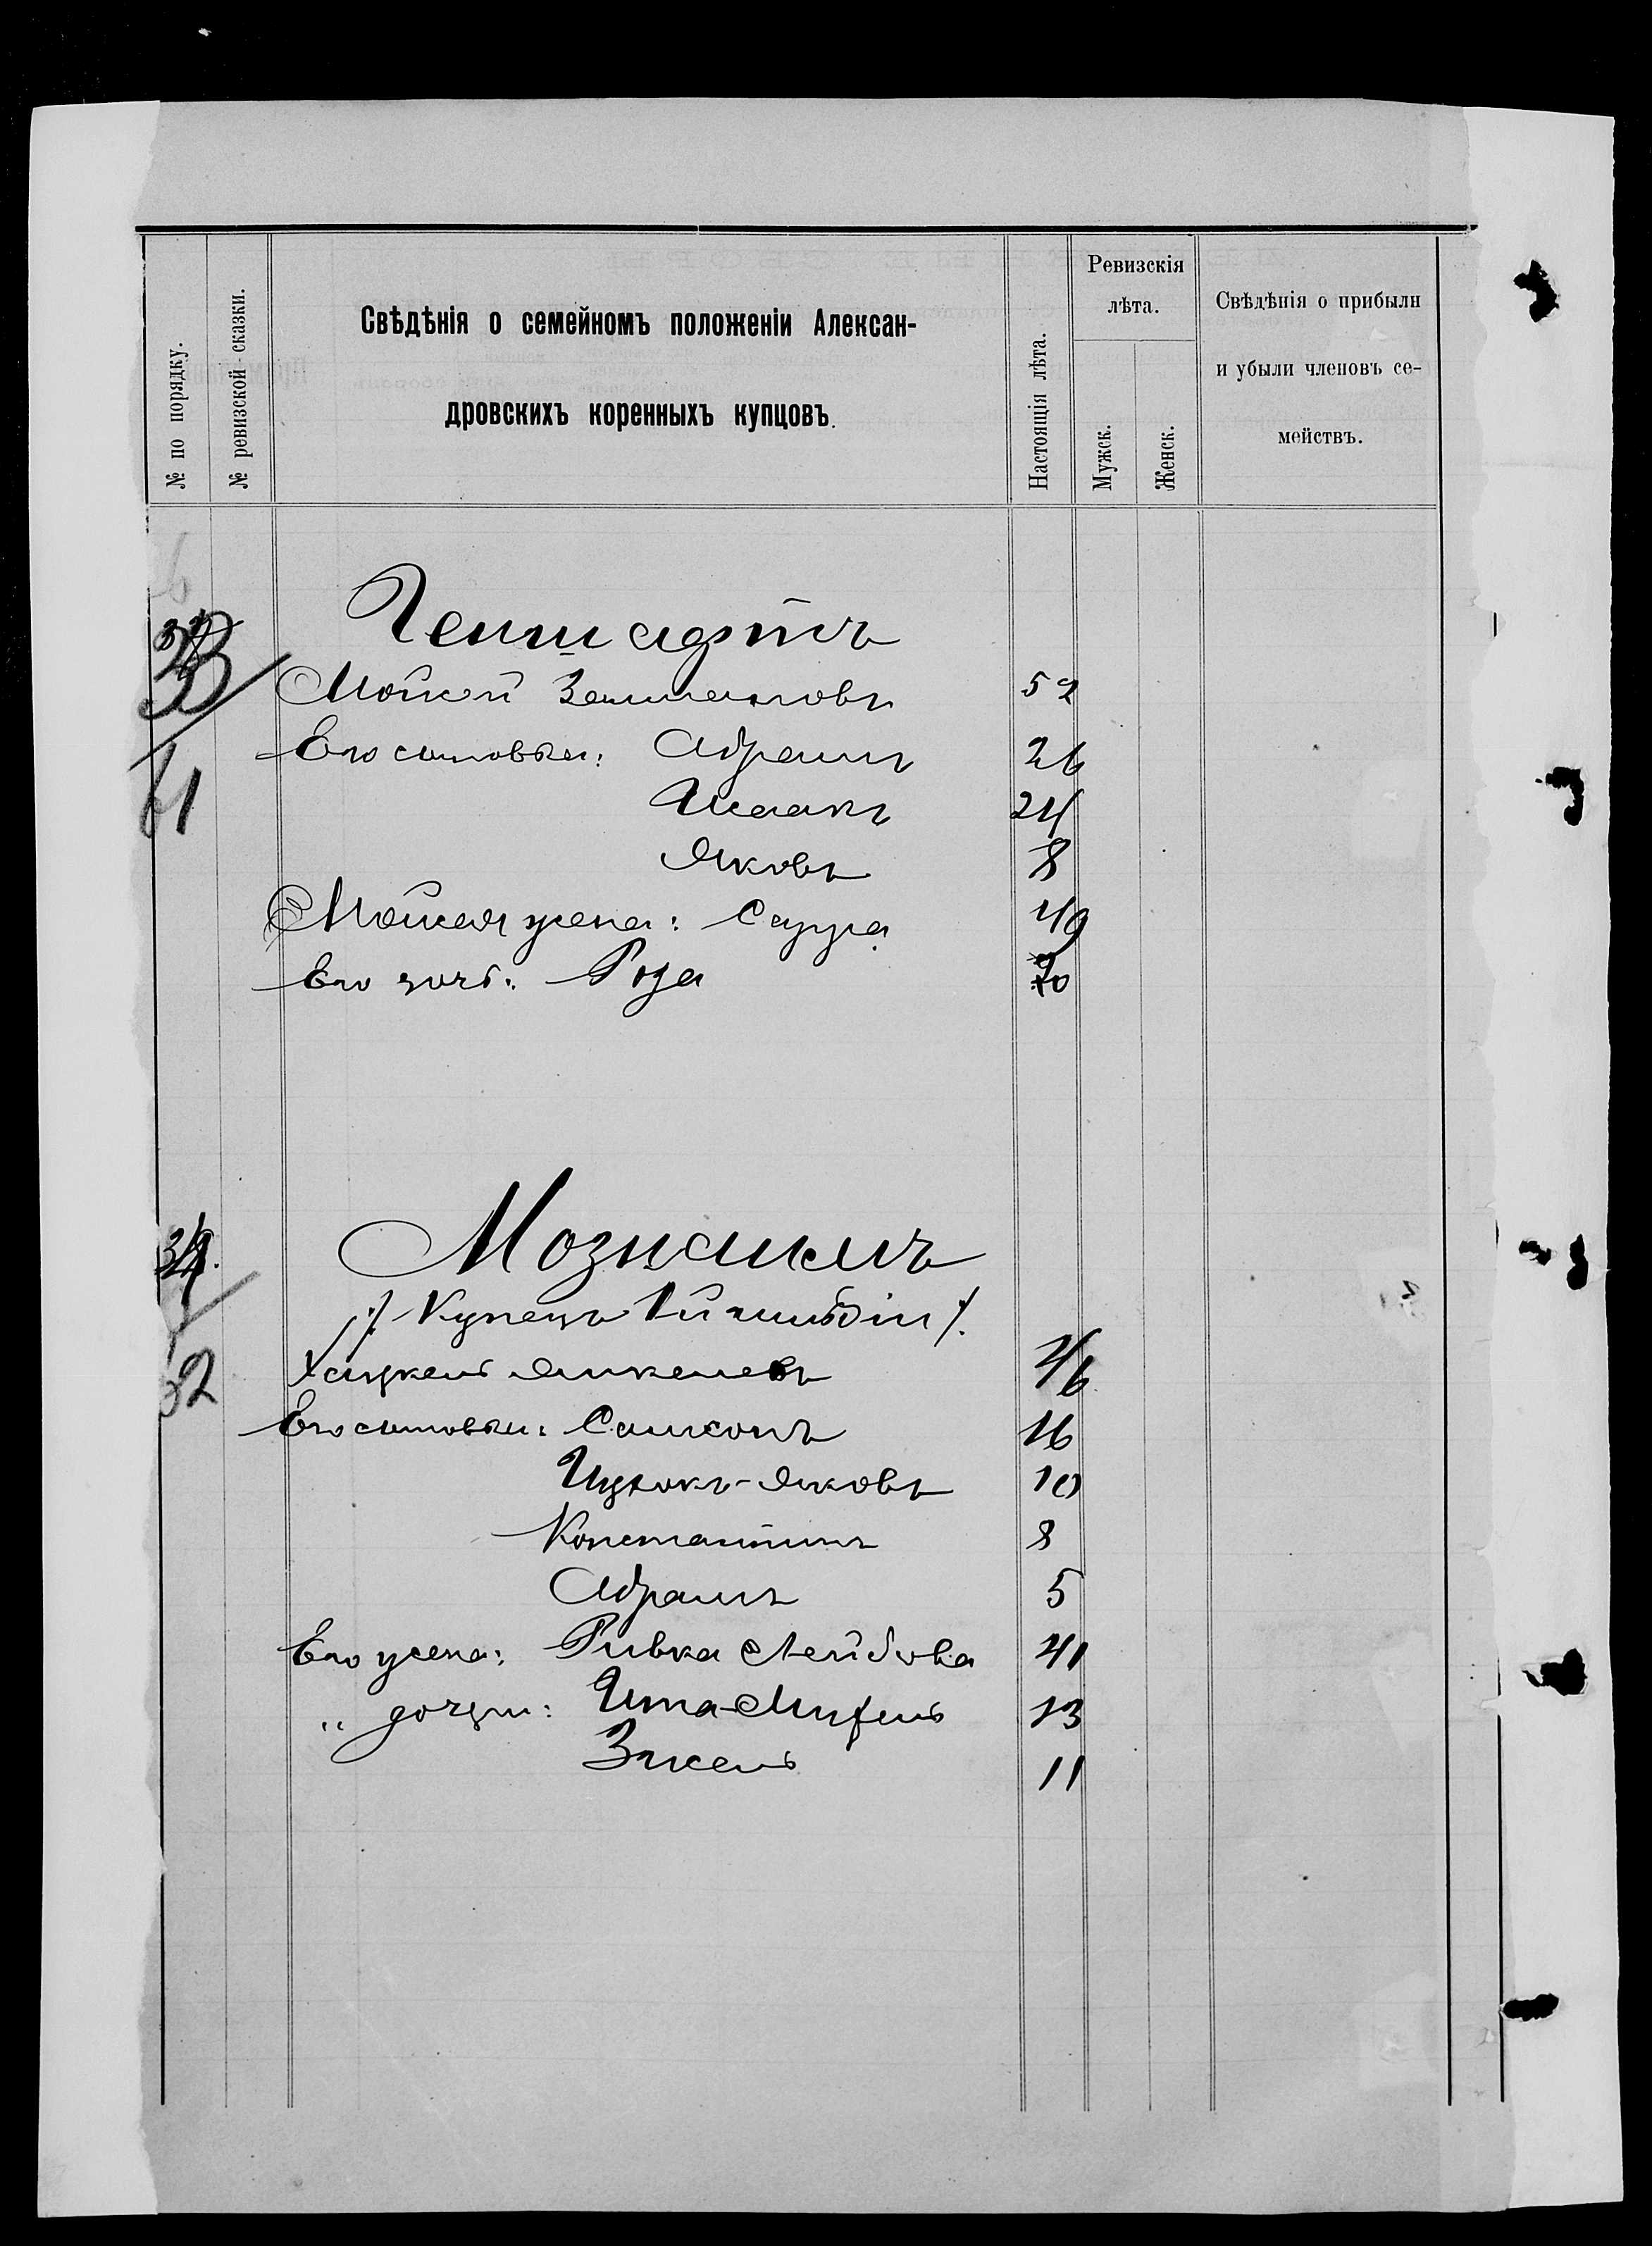 № по порядку.
№ ревизской сказки.
Свѣдѣнія о семейномъ положеніи Алексан-
дровскихъ коренныхъ купцовъ.
Настоящія лѣта.
Ревизскія
лѣта.
Мужск.
Женск.
Свѣдѣнія о прибыли
и убыли членовъ се-
мействъ.
33
Мойсей Залмановъ 52
Его сыновья: Абрамъ 26
Исаакъ 24
Яковъ 8
Мойсея жена: Сарра 49
Его дочь: Роза 20
61
34.
Мознаимъ
Купецъ
Хацкель Янкелевъ 46
Его сыновья: Самсонъ 16
Ицхокъ-Яковъ 10
Константинъ 8
Абрамъ 5
Его жена: Ривка Лейбова 41
„ дочери: Ита- 13
11
62